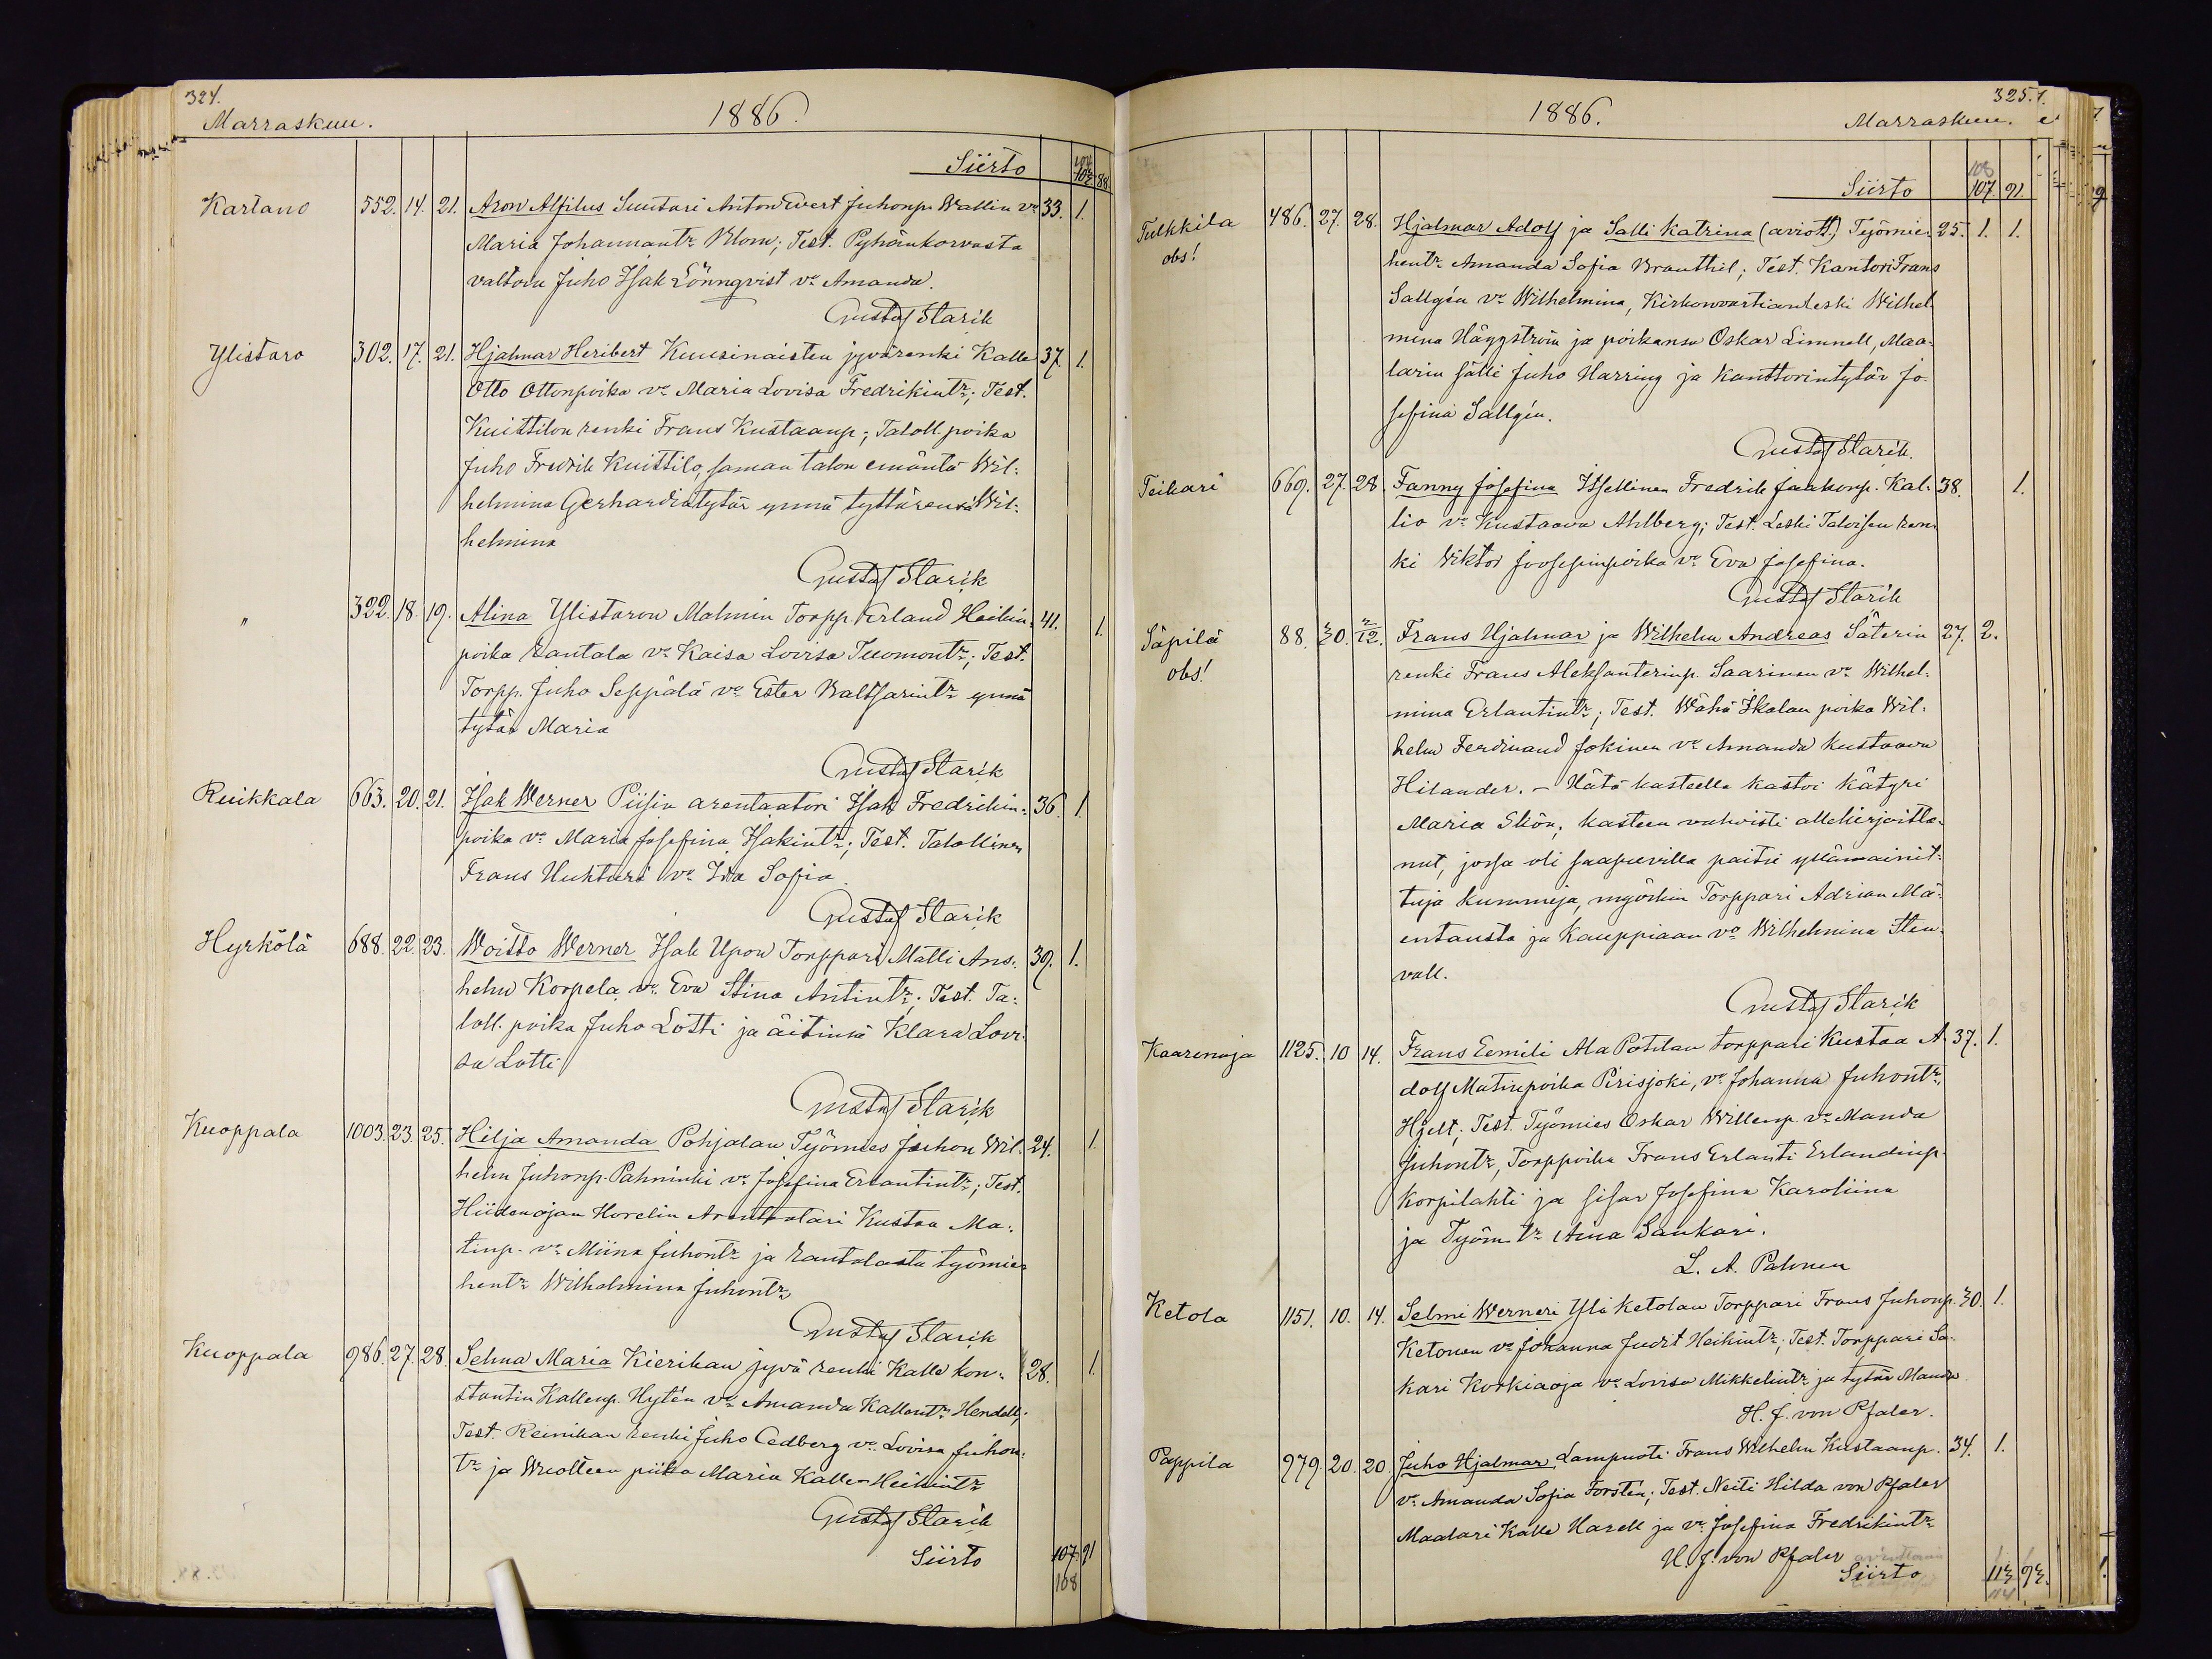 324.
Marraskuu.
1886.
Siirto 88
Kartano 552. 14. 21. Aron Alfilus Suutari Anton Evert Juhonp. Wallin vo 33. 1.
Maria Johannantr Blom; Test. Pyhänkorvasta
valtari Juho Isak Lönnqvist vo Amanda.
Gustaf Starik
Ylistaro 302. 17. 21. Hjalmar Heribert Kuusinaisten jyvärenki Kalle 37. 1.
Otto Ottonpoika vo Maria Lovisa Fredrikintr; Test.
Kuittilon renki Frans Kustaanp; Taloll. poika
Juho Fredrik Kuittilo, saman talon emäntä Wil:
helmina Gerhardintytär ynnä tyttärensä Wil:
helmina
Gustaf Starik
" 322. 18. 19. Alina Ylistaron Malmin Torpp. Erland Heikin: 41. 1.
poika Rantala vo Kaisa Lovisa Tuomontr; Test.
Torpp. Juho Seppälä vo Ester Baltsarintr ynnä
tytär Maria
Gustaf Starik
Ruikkala 663. 20. 21. Isak Werner Piisin arentaatori Isak Fredrikin: 36. 1.
poika vo Maria Josefina Isakintr; Test. Talollinen
Frans Uuhturi vo Ida Sofia
Gustaf Starik
Hyrkölä 688. 22. 23. Woitto Werner Isak Upon Torppari Matti Ans: 39. 1.
helm Korpela vo Eva Stina Antintr; Test. Ta:
loll. poika Juho Lotti ja äitinsä Klara Lovi
sa Lotti
Gustaf Starik
Kuoppala 1003. 23. 25. Hilja Amanda Pohjalan Työmies Juhon Wil: 24. 1.
helm Juhonp. Pahninki vo Josefina Erlantintr; Test.
Hiidenojan Horelin Arentaatari Kustaa Ma:
tinp. vo Miina Juhontr ja Rantalasta työmie
hentr Wilhelmina Juhontr
Gustaf Starik
Kuoppala 986. 27. 28. Selma Maria Kierikan jyvä renki Kalle kon: 28. 1.
stantin Kallenp. Hytén vo Amanda Kallentr Hendell;
Test. Reinikan renki Juho Cedberg vo Lovisa Juhon:
tr ja Wuolteen piika Maria Kalle Heikintr
Gustaf Starik
Siirto 107. 91
108
325.
1886.
Marraskuu.
108
Siirto 107 91.
Tulkkila 486. 27. 28. Hjalmar Adolf ja Salli Katrina (aviott.) Työmie: 25. 1. 1.
obs! hentr Amanda Sofia Branthil; Test. Kantori Frans
Sallgén vo Wilhelmina, Kirkonvartianleski Wilhel
mina Häggström ja poikansa Oskar Limnell, Maa:
larin sälli Juho Harring ja Kanttorintytär Jo:
sefina Sallgén.
Gustaf Starik.
Teikari 669. 27. 28 Fanny Josefina Itsellinen Fredrik Jaakonp. Kal: 38. 1.
lio vo Kustaava Ahlberg; Test. Leski Talvisen ren:
ki Wiktor Joosepinpoika vo Eva Josefina.
Gustaf Starik
Säpilä 88. 30. 2/12. Frans Hjalmar ja Wilhelm Andreas Säterin 27. 2.
obs! renki Frans Aleksanterinp. Saarinen vo Wilhel:
mina Erlantintr; Test. Wähä Ikalan poika Wil:
helm Ferdinand Jokinen vo Amanda Kustaava
Hilander. – Hätä kasteella kastoi kätyri
Maria Skön, kasteen vahvisti allekirjoitta:
nut, jossa oli saapuvilla paitsi yllämainit:
tuja kummeja, myöskin Torppari Adrian Mä:
entausta ja Kauppiaan vo Wilhelmina Sten:
vall.
Gustaf Starik
Kaarenoja 1125. 10 14. Frans Eemili Ala Potilan torppari Kustaa A 37. 1.
dolf Matinpoika Pirisjoki, vo Johanna Juhontr
Hjelt; Test. Työmies Oskar Willenp. vo Manda
Juhontr, Torppoika Frans Erlanti Erlandinp.
Korpilahti ja sisar Josefina Karoliina
ja Työm. tr Aina Sankari.
L. A. Palonen
Ketola 1151. 10. 14. Selmi Werneri Yli Ketolan Torppari Frans Juhonp. 30. 1.
Ketonen vo Johanna Judit Heikintr; Test. Torppari Sa:
kari Korkiaoja vo Lovisa Mikkelintr ja tytär Manda
H. J. von Pfaler.
Pappila 979. 20. 20. Juho Hjalmar Lampuoti Frans Wilhelm Kustaanp. 34. 1.
vo Amanda Sofia Forstén; Test. Neiti Hilda von Pfaler
Maalari Kalle Harell ja vo Josefina Fredrikintr
H. J. von Pfaler
Siirto 113 93.
114